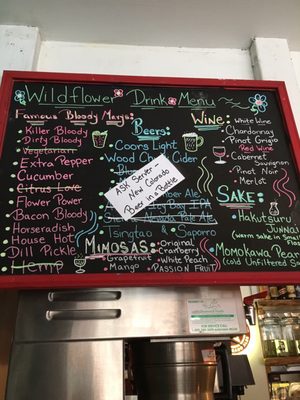 Wildflower Drink Menu
Famous Bloody Mary's
Killer Bloody
Dirty Bloody
Vegetarian
Extra Pepper
Cucumber
Citrus Love
Flower Power
Bacon Bloody
Horseradish
House Hot
Dill Pickle
Hemp
Beers:
Coors Light
Wood Cider
Amber Ale
IPA
India Pale Ale
Tsingtao Sapporo
ASK Server -
New Colorado
Beer in a Bottle
Mimosas:
Original
Grapefruit
Cranberry
Mango
White Peach
Passion Fruit
Wine:
White Wine
Chardonnay
Pinot Grigio
Red Wine
Cabernet
Sauvignon
Pinot Noir
Merlot
Sake:
Hakutsuru
(warm sake in Small
Momokawa Pear
(cold Unfiltered Sa